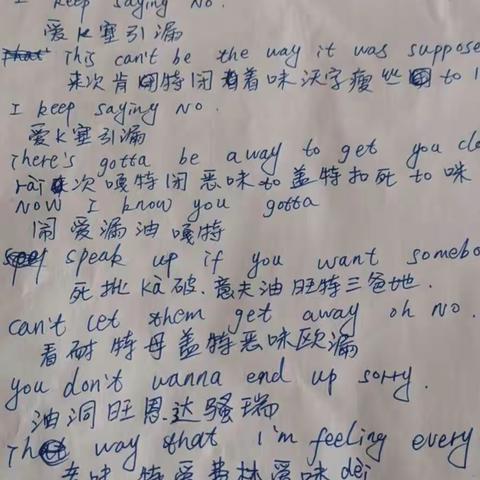 I keep saying No.
爱K塞引漏
This can't be the way it was suppose
来次肯特闭着味沃字瘦丝 to
I keep saying No.
爱K塞引漏
There's gotta be a way to get you clo
次嘎特闭恶味to盖特扣死to咪
Now I know you gotta
闹爱漏油嘎特
speak up if you want somebo
死批kà破.意夫油旺特三爸地.
can't let them get away oh No.
看耐特母盖特恶味欧漏
you don't wanna end up sorry.
油洞旺恩达骚瑞
The way that i'm feeling every
味特爱费林爱味dèi